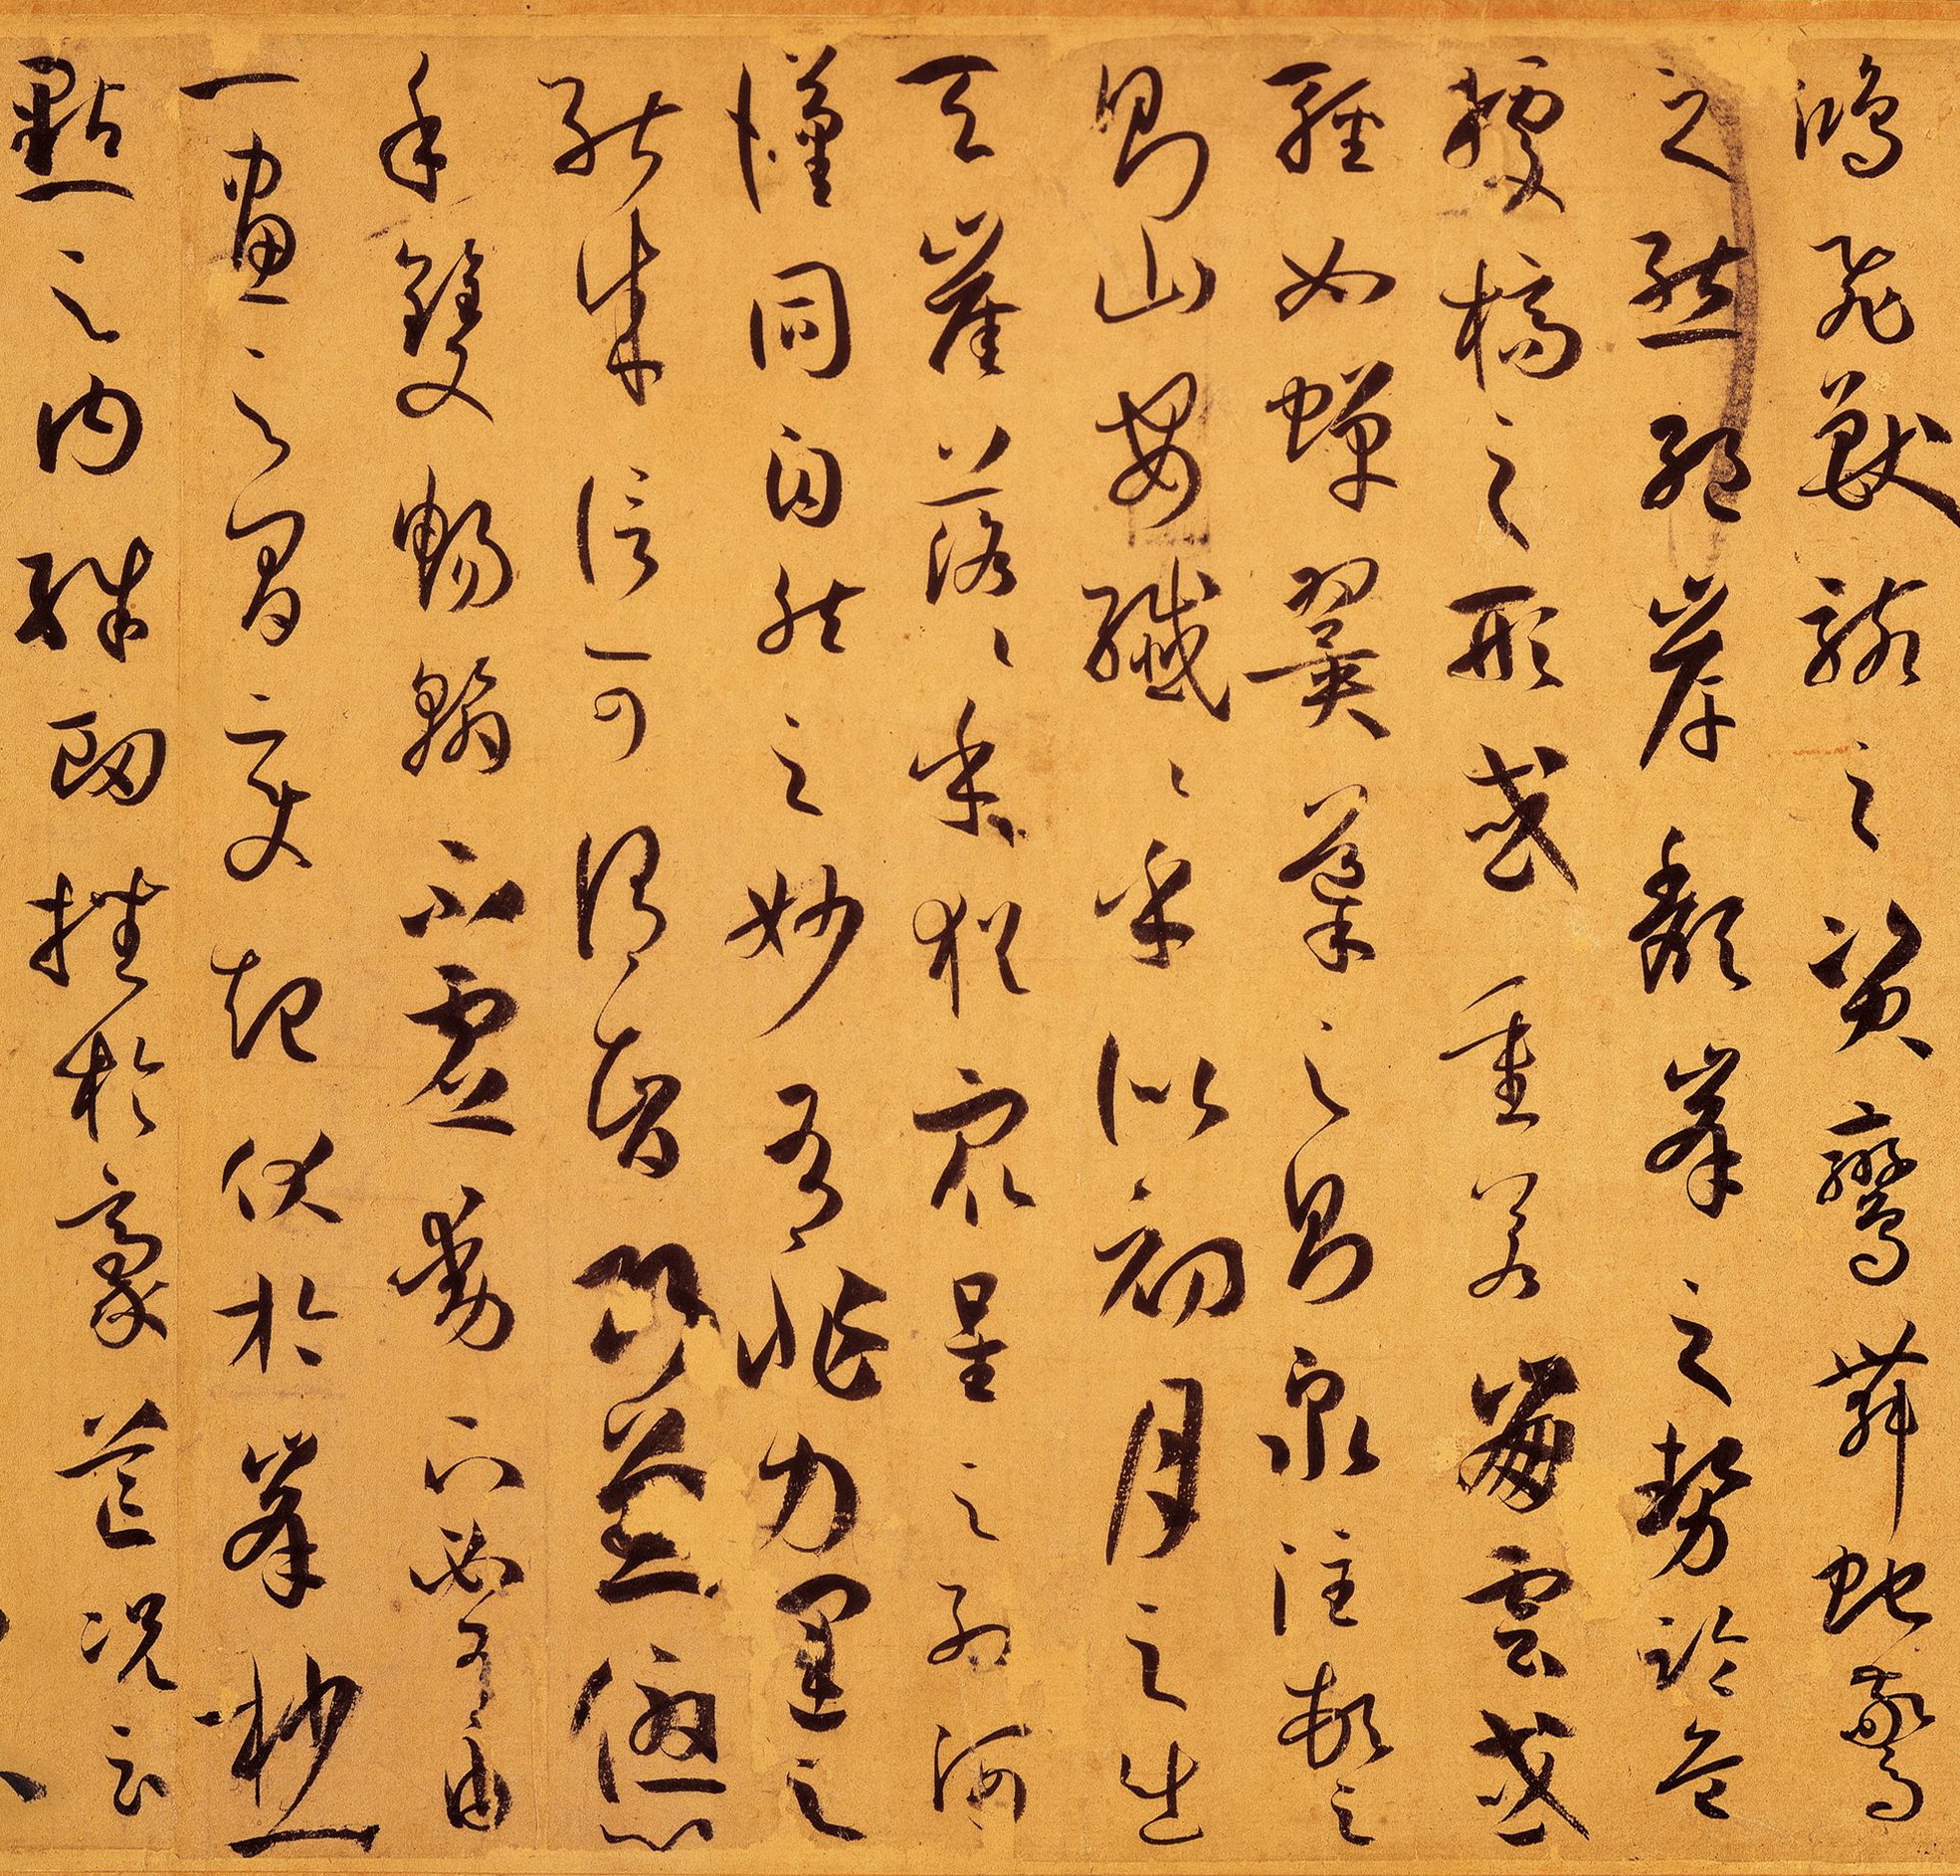 鴻飛獸駭之資鸞舞蛇驚
之態絕岸頹峯之勢臨危
據槁之形或重若崩雲或
輕如蟬翼導之則泉注頓之
則山安纖〻乎似初月之出
天崖落〻乎猶衆星之列河
漢同自然之妙有非力運之
能成信可謂智巧兼優心
手雙暢翰不虛動下必有由
一畫之間變起伏於峯杪一
點之內殊衄挫於豪芒況云